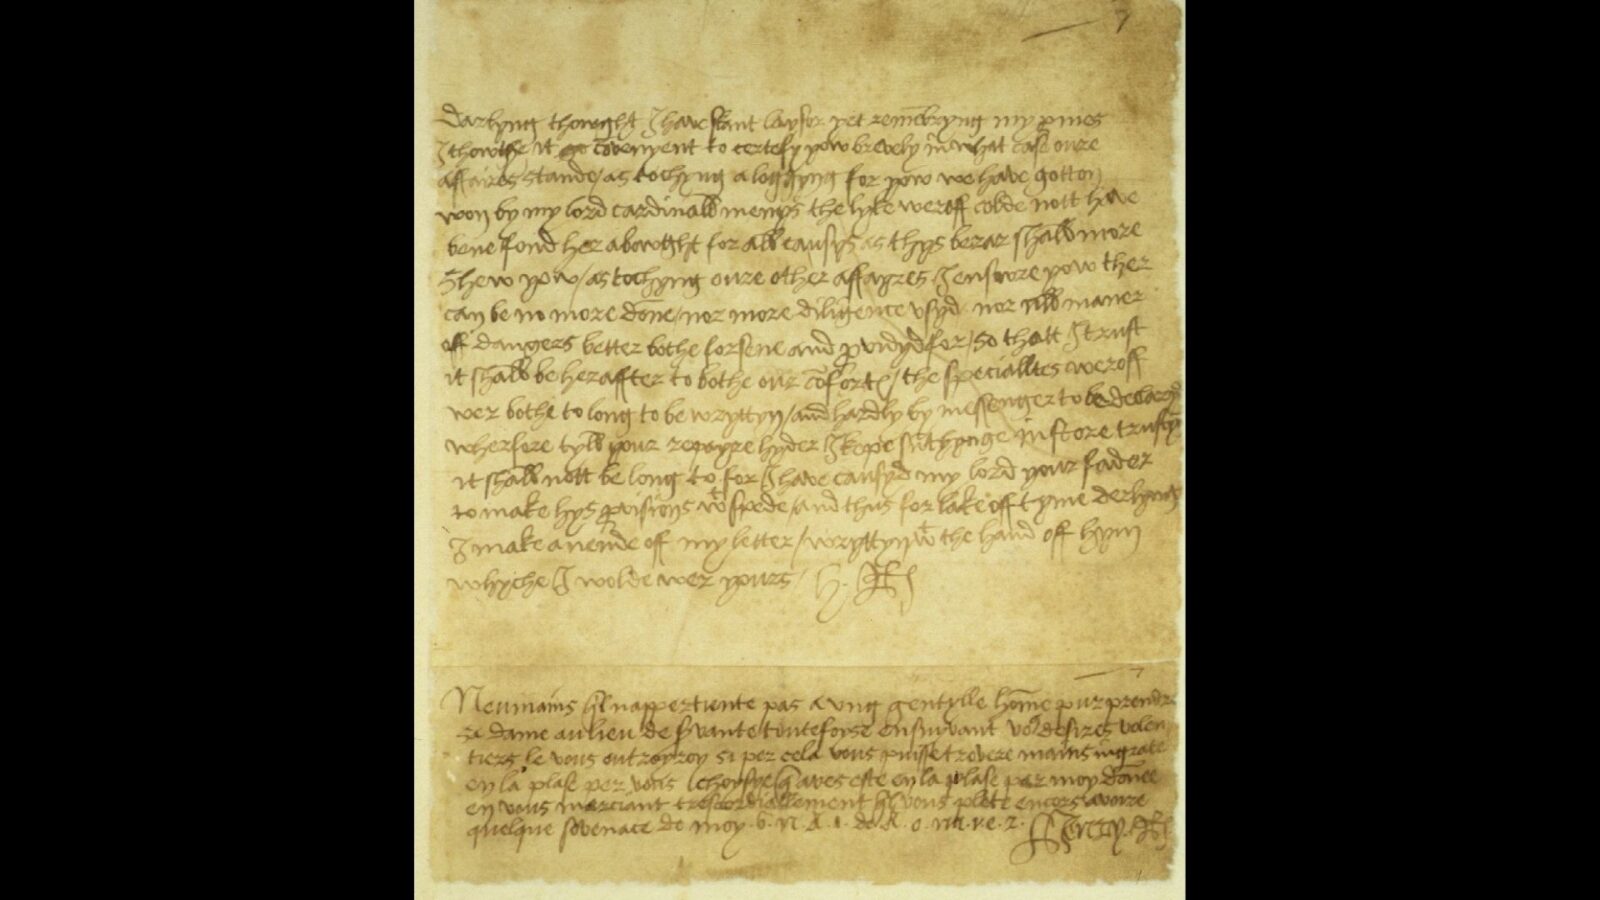 7
Darlyng thowght I have skant laysor yet remēbryng my pmes
I thowthe it go cōvenyent to certefy yow brevely in what case oure
affaires stande / as tochyng a loggyng for yow we have gotton
won by my lord cardinall menys the lyke weroff colde nott have
bene fond her abowght for all causys as thys berar shall more
shew yow / as tochyng oure other affayres I ensure yow ther
can be no more done / nor more diligence usyd nor all maner
off dangers better bothe forsene and pvidyd for / so thatt I trust
it shall be heraffter to bothe our cōforts / the specialltes weroff
wer bothe to long to be wryttyn / and hardly by messenger to be declaryd
wherfore tyll your repayre hyder I kepe sū thynge in store trustyng
it shall nott be long to for I have causyd my lord your fader
to make hys pvisions wt spede / and thus for lake off tyme derlyng
I make a nende off my letter / wryttyn wt the hand off hym
whyche I wolde wer yours / H. R
7
Neumains q̄l nappertiente pas a ung gentylle hōme pur prendre
sa dame au lieu de svante touteforse ensuivant vo desires volen
tiers le vous outroyroy si per cela vous puisse trovere mains ingrate
en la plase per vous choysye q̄ aves este en la plase per moy donee
en vous marciant trescordiallement q̄l vous plete encors avoire
quelque sovenace de moy . 6 . n . A . 1 . de A . o . na . v . e . z . Henry R